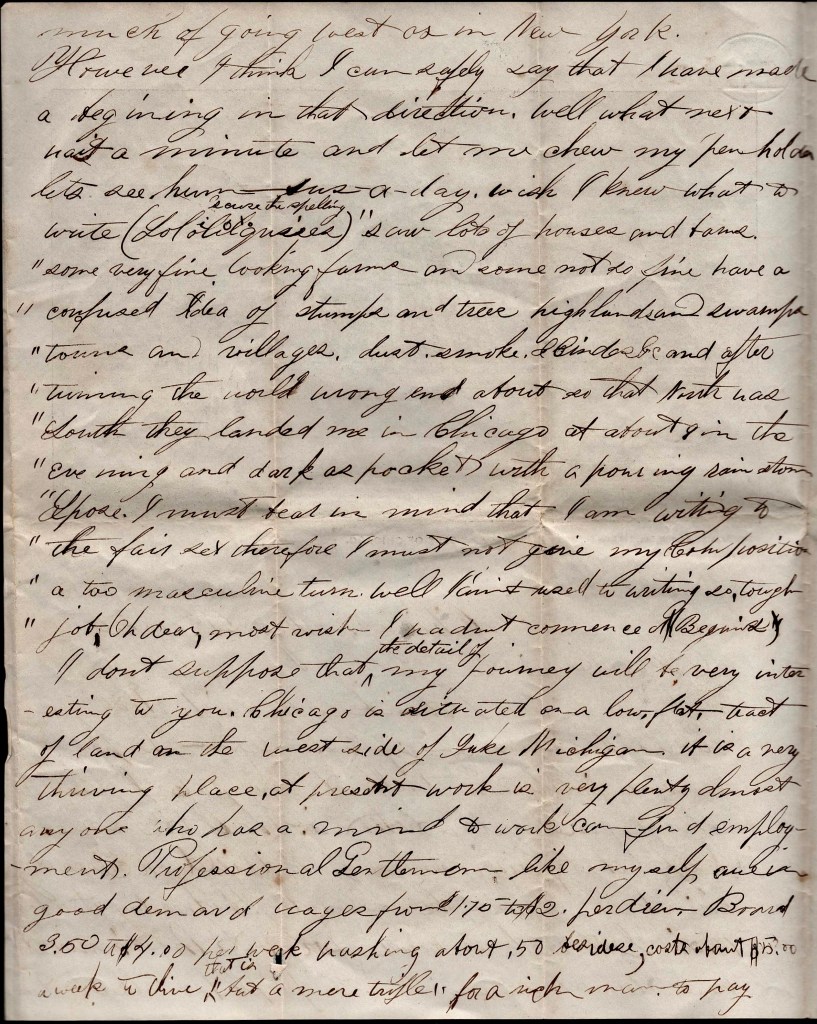 much of going west as in New York.
However I think I can safely say that I have made
a begining in that direction. well what next
wait a minute and let me chew my pen holder
lets see. hum a-day. wish I knew what to
'scuse the spelling
write ( )" saw lots of houses and barns.
" some very fine looking farms and some not so fine have a
" confused Idea of stumps and trees highlands and swamps
" towns and villages. dust. smoke. & and after
" turning the world wrong end about so that North was
" South they landed me in Chicago at about 9 in the
" evening and dark as pocket with a pouring rain storm
" Spose. I must bear in mind that I am writing to
" the fair sex therefore I must not give my Composition
" a too masculine turn. well I aint used to writing so, tough
" job, Oh dear, most wish I hadnt commenced (Begins)
the detail of
I dont suppose that ^ my journey will be very inter
-esting to you. Chicago is situated on a low, flat, tract
of land on the west side of Lake Michigan. it is a very
thriving place, at present work is very plenty almost
anyone who has a mind to work can find employ-
-ment. Professional Gentlemen like myself are in
good demand wages from $1.75 to $2. per diem Board
3.50 to $4.00 per week washing about .50 besides, costs about $5.00
that is
a week to live, " but a mere trifle" for a rich man to pay